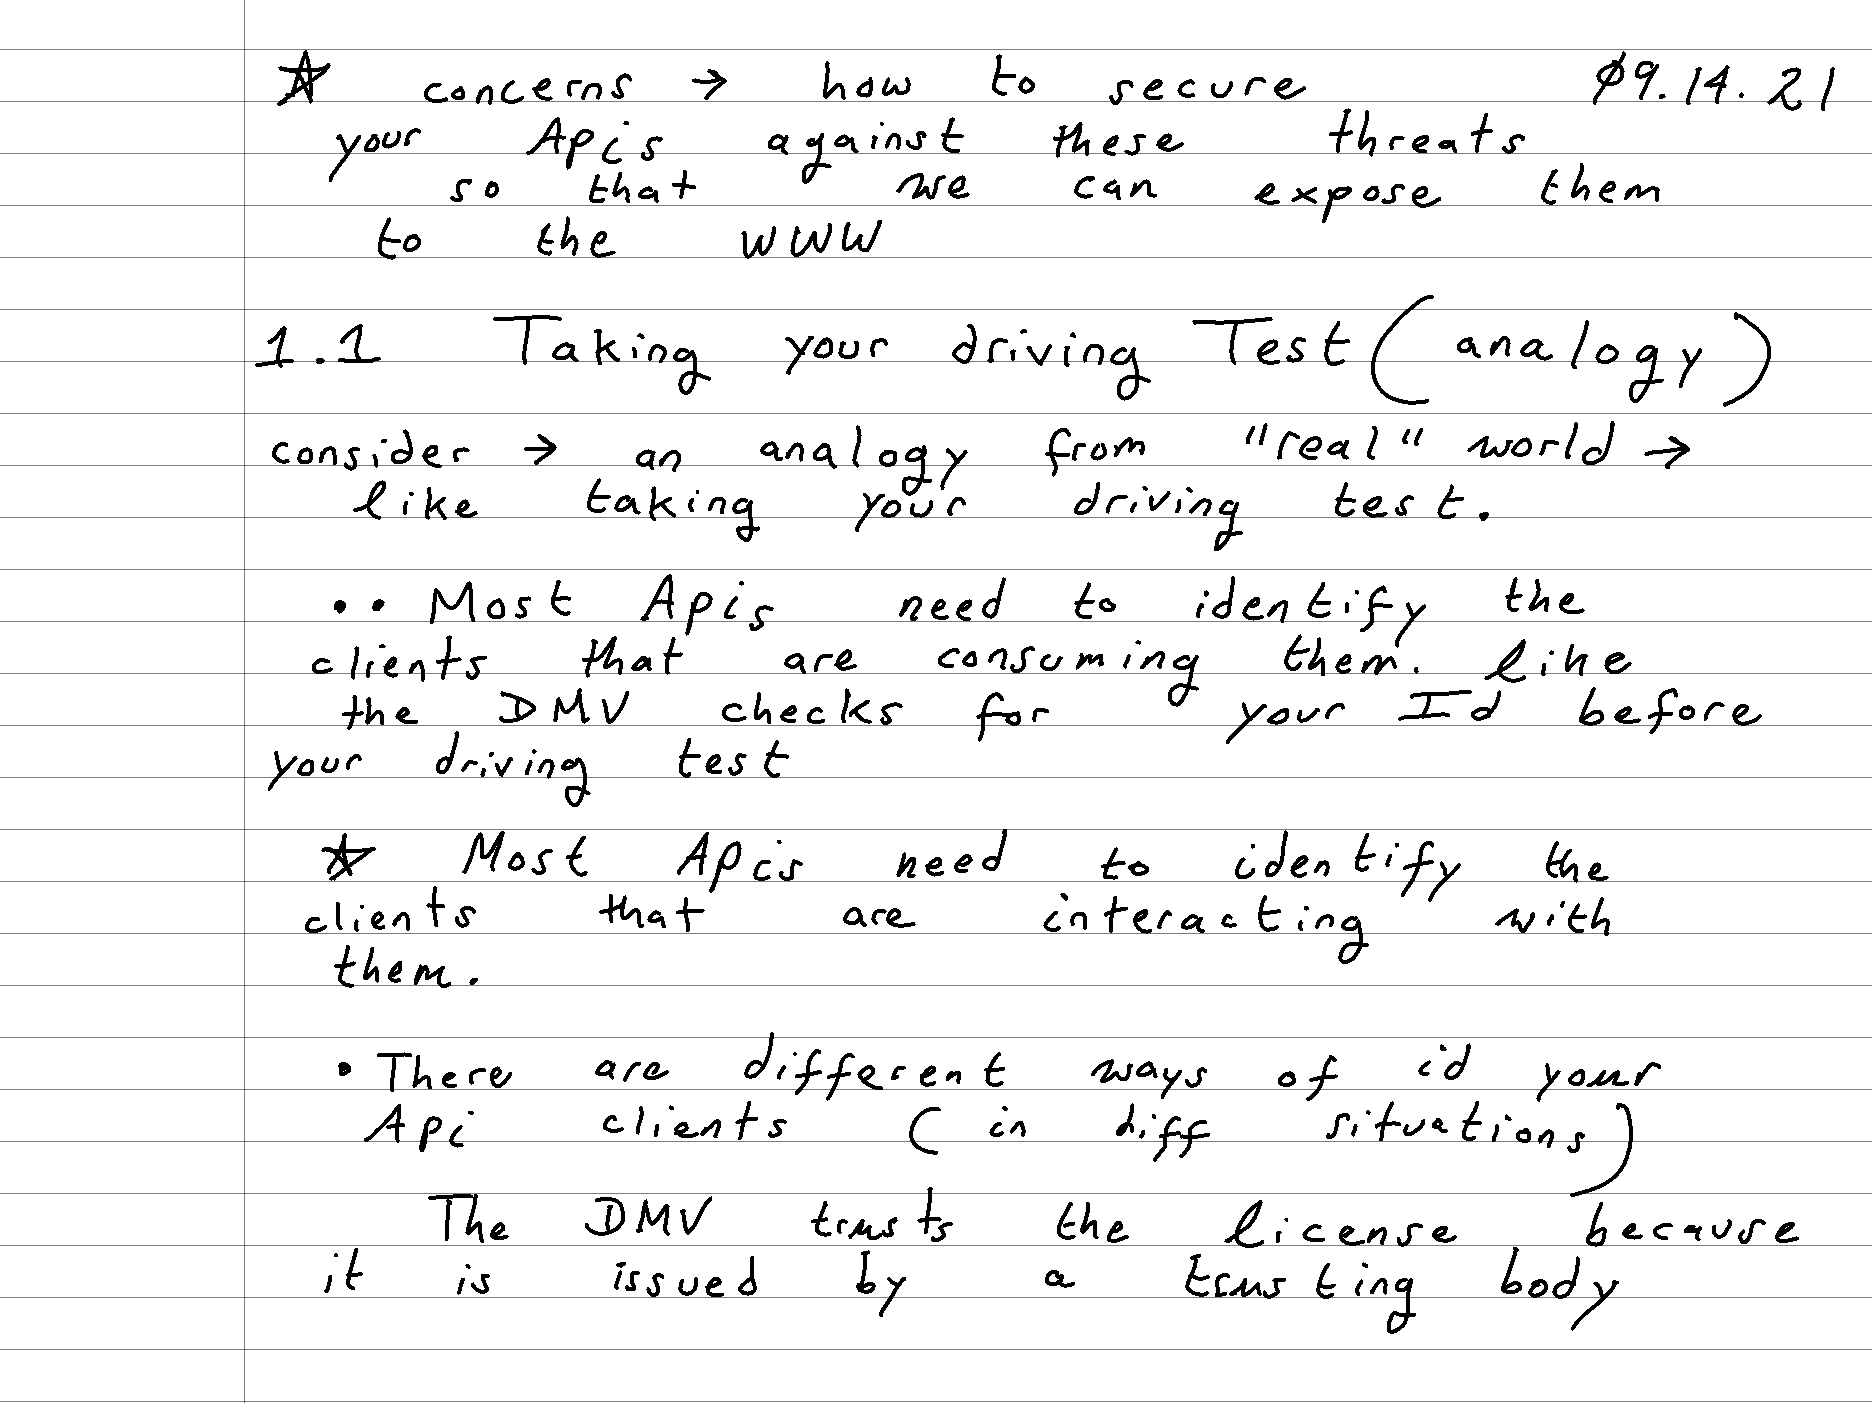 ☆ concerns → how to secure 09.14.21
your Apis against these threats
so that we can expose them
to the WWW
1.1 Taking your driving Test (analogy)
consider → an analogy from "real" world →
like taking your driving test.
•• Most Apis need to identify the
clients that are consuming them. like
the DMV checks for your Id before
your driving test
☆ Most Apis need to identify the
clients that are interacting with
them.
• There are different ways of id your
Api clients (in diff situations)
The DMV trusts the license because
it is issued by a trusting body